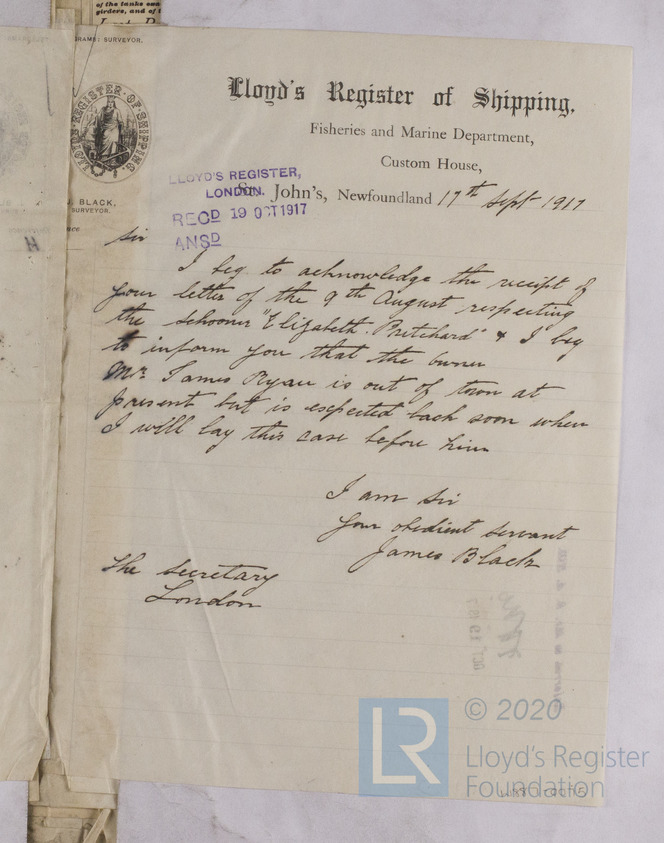 of the tanks
girders, and of
RAMS: SURVEYOR,
LLOYD'S REGISTER OF SHIPPING
J. BLACK,
SURVEYOR.
Lloyd's Register of Shipping.
Fisheries and Marine Department,
Custom House,
St. John's, Newfoundland 17th Sept 1917
LLOYD'S REGISTER,
LONDON.
RECD 19 OCT 1917
ANSD
Sir
I beg to acknowledge the receipt of
your letter of the 9th August respecting
the schooner "Elizabeth Pritchard" & I beg
to inform you that the owner
Mr. James Ryan is out of town at
present but is expected back soon when
I will lay this case before him
I am Sir
Your obedient servant
James Black
The Secretary
London
LR
© 2020
Lloyd's Register
Foundation